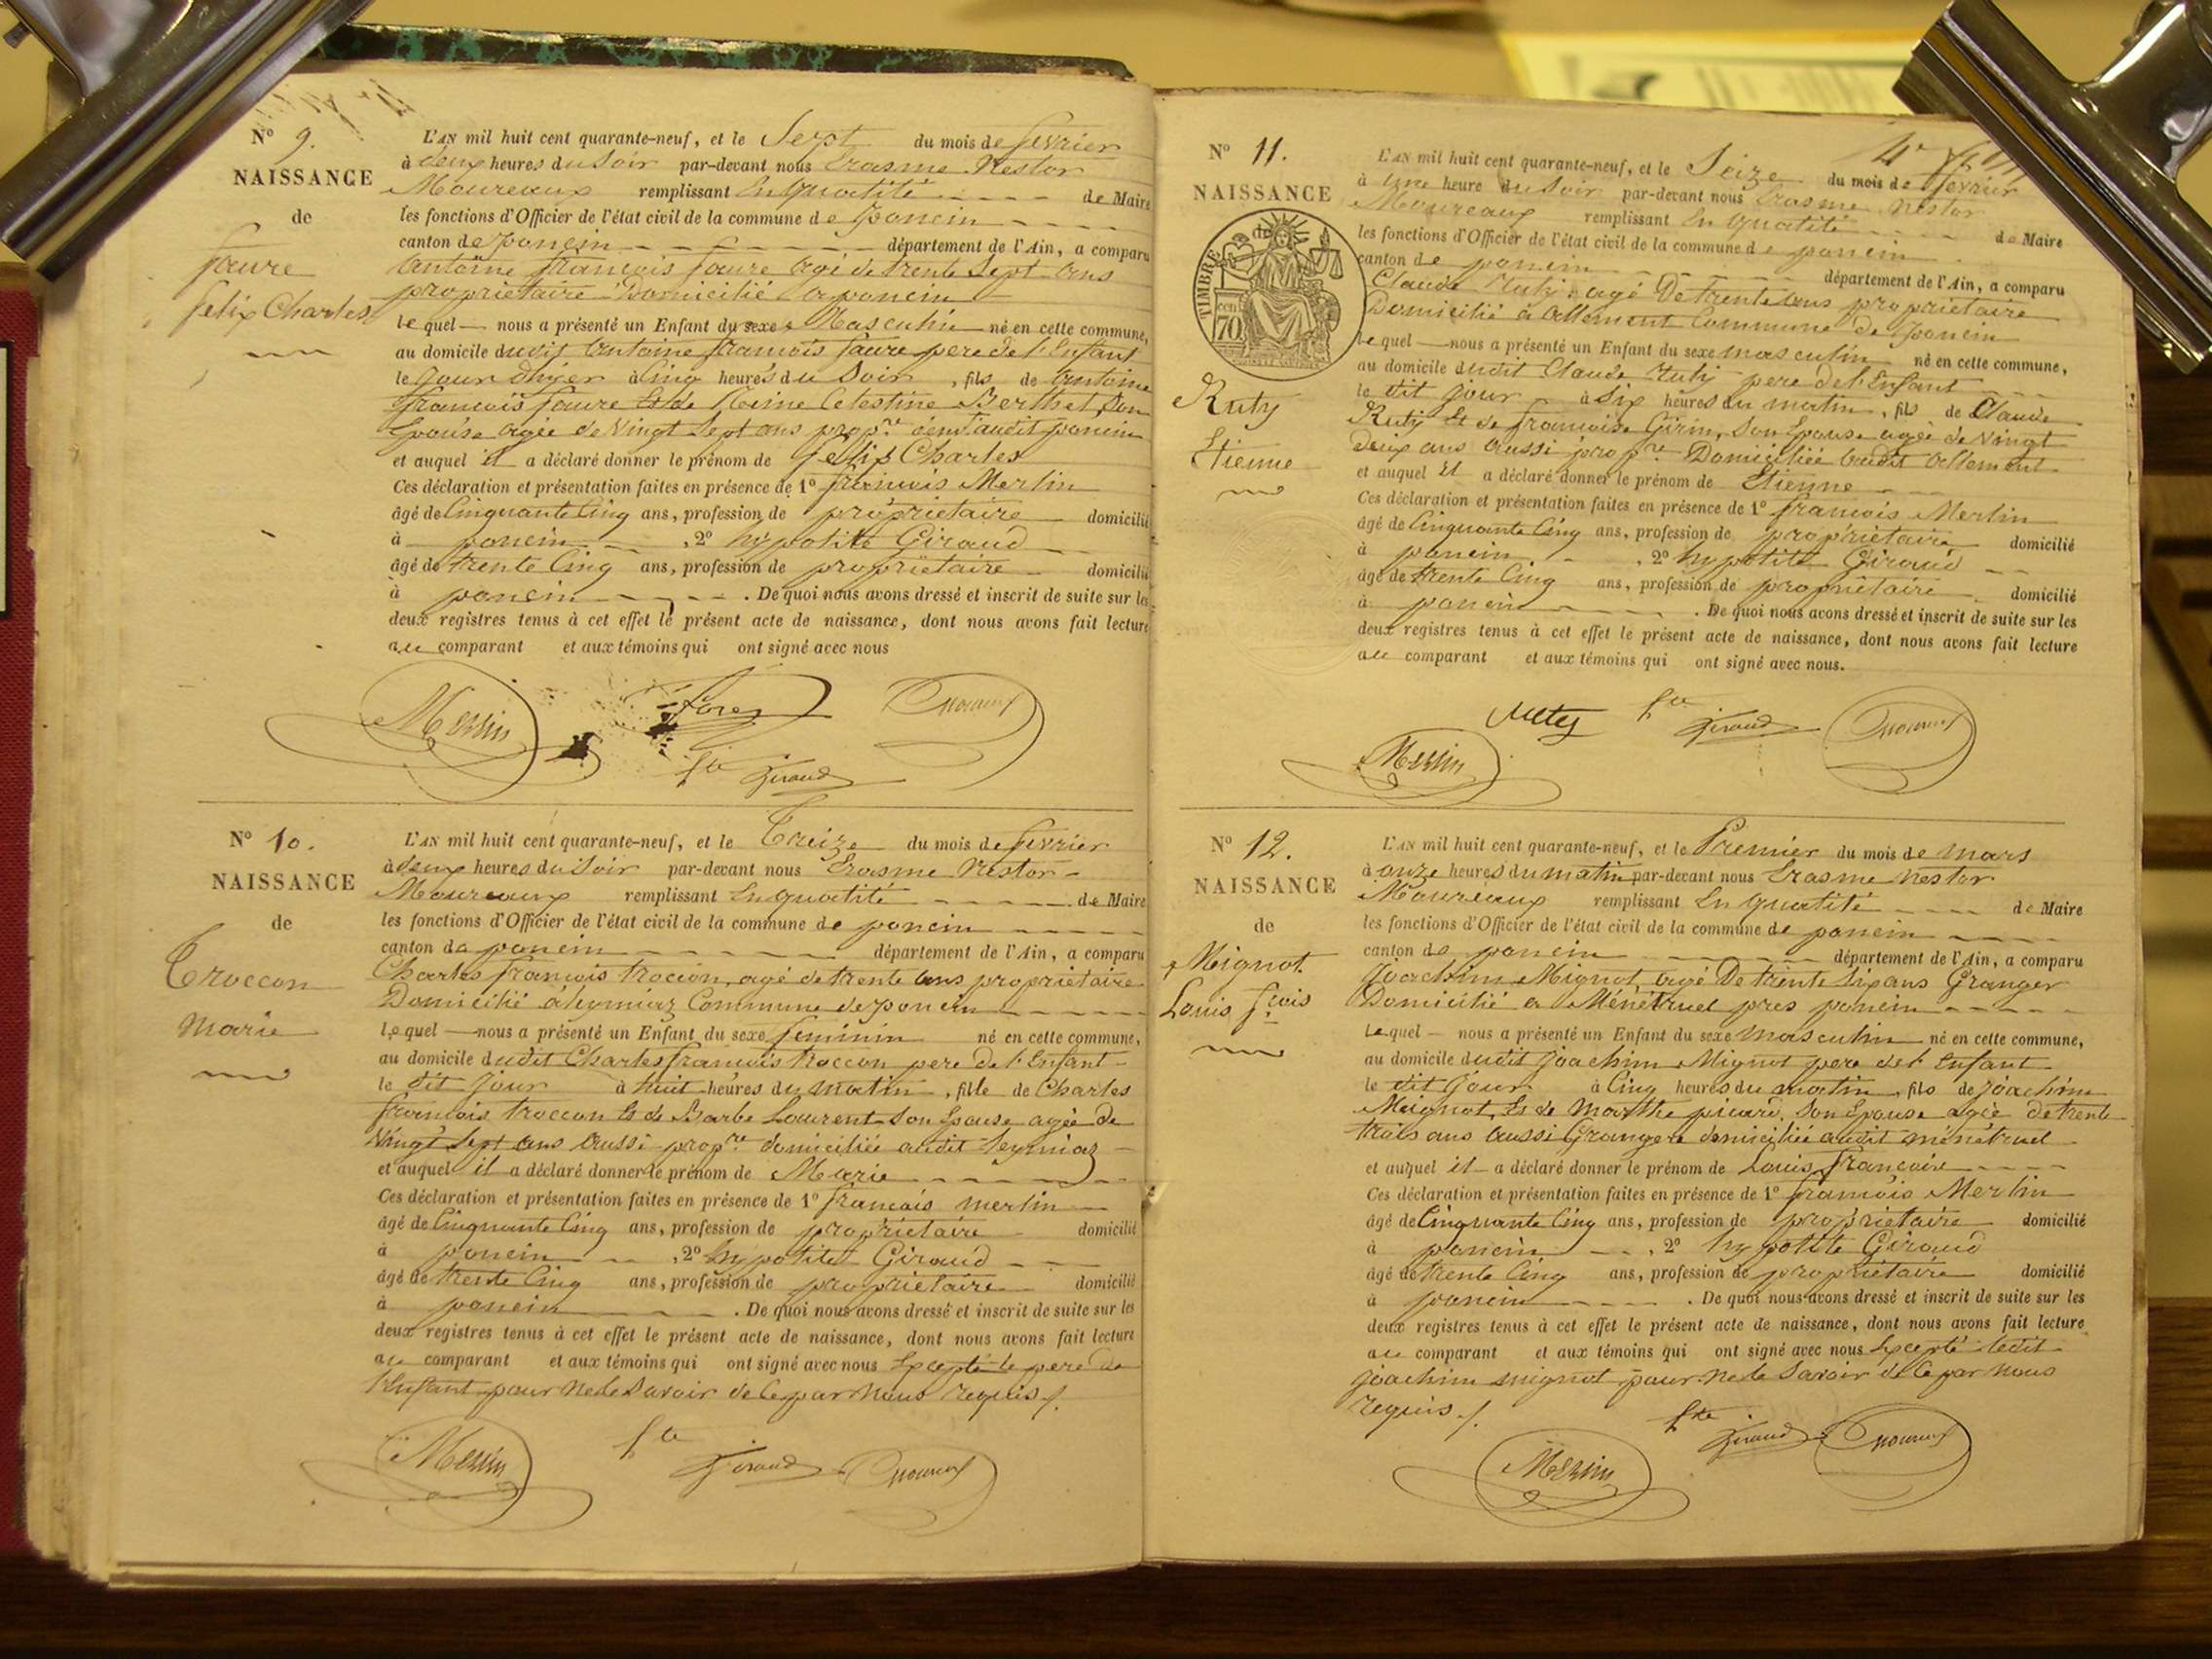 N° 9.
NAISSANCE
de
faure
felix Charles
L'AN mil huit cent quarante-neuf, et le Sept du mois de fevrier
à deux heures du Soir par-devant nous Erasme Nestor
Moureaux remplissant En qualité de Maire
les fonctions d'Officier de l'état civil de la commune de poncin
canton de poncin département de l'Ain, a comparu
antoine francois faure agé de trente Sept ans
proprietaire Domicilié a poncin
lequel nous a présenté un Enfant du sexe Masculin né en cette commune,
au domicile dudit antoine francois faure pere de l'Enfant
le jour d'hyer à Cinq heures du Soir, fils de antoine
francois faure Et de Reine Celestine Berthet, Son
Epouse agée de Vingt Sept ans prop.re audit poncin
et auquel il a déclaré donner le prénom de felix Charles
Ces déclaration et présentation faites en présence de 1° francois Merlin
âgé de Cinquante Cinq ans, profession de proprietaire domicilié
à poncin, 2° hypolite Giraud
âgé de trente Cinq ans, profession de proprietaire domicilié
à poncin. De quoi nous avons dressé et inscrit de suite sur les
deux registres tenus à cet effet le présent acte de naissance, dont nous avons fait lecture
au comparant et aux témoins qui ont signé avec nous
Merlin
hte Giraud
N° 10.
NAISSANCE
de
Troccon
Marie
L'AN mil huit cent quarante-neuf, et le Treize du mois de fevrier
à deux heures du Soir par-devant nous Erasme Nestor
Moureaux remplissant En qualité de Maire
les fonctions d'Officier de l'état civil de la commune de poncin
canton de poncin département de l'Ain, a comparu
Charles francois troccon, agé de trente ans proprietaire
Domicilié à leymiaz Commune de poncin
lequel nous a présenté un Enfant du sexe feminin né en cette commune,
au domicile dudit Charles francois troccon pere de l'Enfant
le dit jour à huit heures du matin, fille de Charles
francois troccon Et de Barbe Laurent Son Epouse agée de
Vingt Sept ans aussi prop.re domiciliée audit leymiaz
et auquel il a déclaré donner le prénom de Marie
Ces déclaration et présentation faites en présence de 1° francois merlin
âgé de Cinquante Cinq ans, profession de proprietaire domicilié
à poncin, 2° hypolite Giraud
âgé de trente Cinq ans, profession de proprietaire domicilié
à poncin. De quoi nous avons dressé et inscrit de suite sur les
deux registres tenus à cet effet le présent acte de naissance, dont nous avons fait lecture
au comparant et aux témoins qui ont signé avec nous Excepté le pere de
l'Enfant pour ne le Savoir de ce par nous requis ./.
Merlin
hte Giraud
N° 11.
NAISSANCE
TIMBRE
70
Ruty
Etienne
L'AN mil huit cent quarante-neuf, et le Seize du mois de fevrier
à une heure du Soir par-devant nous Erasme Nestor
Moureaux remplissant En qualité de Maire
les fonctions d'Officier de l'état civil de la commune de poncin
canton de poncin département de l'Ain, a comparu
Claude Ruty, agé De trente ans proprietaire
Domicilié a allement Commune de poncin
lequel nous a présenté un Enfant du sexe masculin né en cette commune,
au domicile dudit Claude Ruty pere de l'Enfant
le dit jour à Six heures du matin, fils de Claude
Ruty Et de francoise Girin, Son Epouse agée de vingt
Deux ans aussi prop.re Domiciliée audit allement
et auquel il a déclaré donner le prénom de Etienne
Ces déclaration et présentation faites en présence de 1° francois Merlin
âgé de Cinquante Cinq ans, profession de proprietaire domicilié
à poncin, 2° hypolite Giraud
âgé de trente Cinq ans, profession de proprietaire domicilié
à poncin. De quoi nous avons dressé et inscrit de suite sur les
deux registres tenus à cet effet le présent acte de naissance, dont nous avons fait lecture
au comparant et aux témoins qui ont signé avec nous.
Ruty hte Giraud
Merlin
N° 12.
NAISSANCE
de
Mignot
Louis f.cois
L'AN mil huit cent quarante-neuf, et le Premier du mois de mars
à onze heures du matin par-devant nous Erasme Nestor
Moureaux remplissant En qualité de Maire
les fonctions d'Officier de l'état civil de la commune de poncin
canton de poncin département de l'Ain, a comparu
Joachim Mignot, agé De trente Six ans Granger
Domicilié a Ménétruel pres poncin
lequel nous a présenté un Enfant du sexe masculin né en cette commune,
au domicile dudit joachim Mignot pere de l'Enfant
le dit jour à Cinq heures du matin, fils de joachim
Mignot, Et de Marthe picard, Son Epouse agée de trente
trois ans aussi Grangere domiciliée audit ménétruel
et auquel il a déclaré donner le prénom de Louis francois
Ces déclaration et présentation faites en présence de 1° francois Merlin
âgé de Cinquante Cinq ans, profession de proprietaire domicilié
à poncin, 2° hypolite Giraud
âgé de trente Cinq ans, profession de proprietaire domicilié
à poncin. De quoi nous avons dressé et inscrit de suite sur les
deux registres tenus à cet effet le présent acte de naissance, dont nous avons fait lecture
au comparant et aux témoins qui ont signé avec nous Excepté ledit
joachim mignot pour ne le Savoir de ce par nous
requis ./.
hte Giraud
Merlin